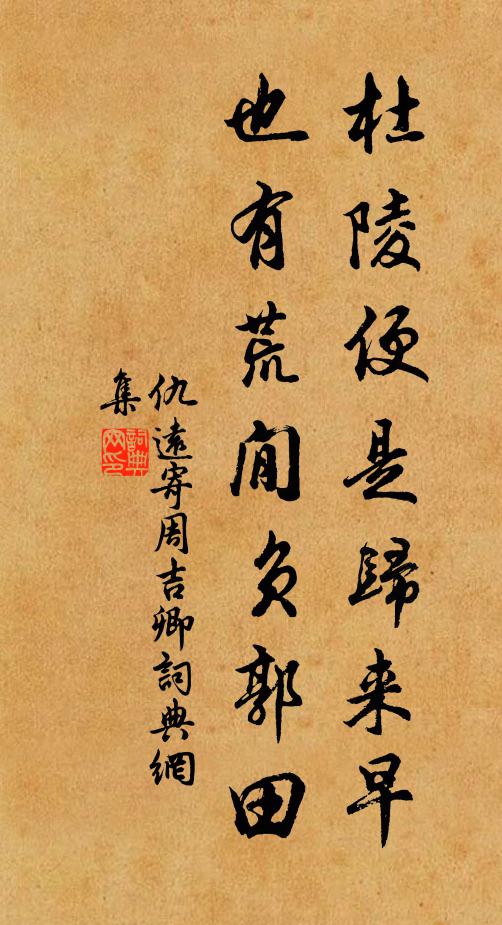 杜陵便是歸来早
也有荒閒負郭田
仇遠寄周吉卿詞典網
集
詞典
网印